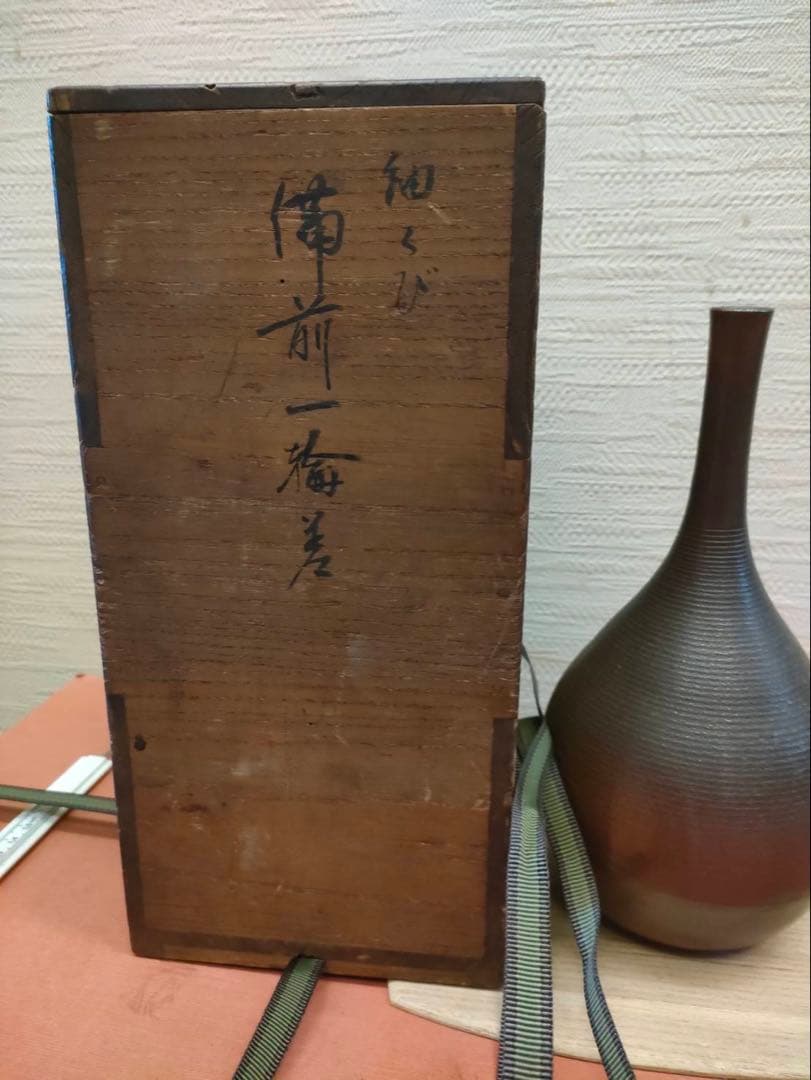 細くび
備前一輪差